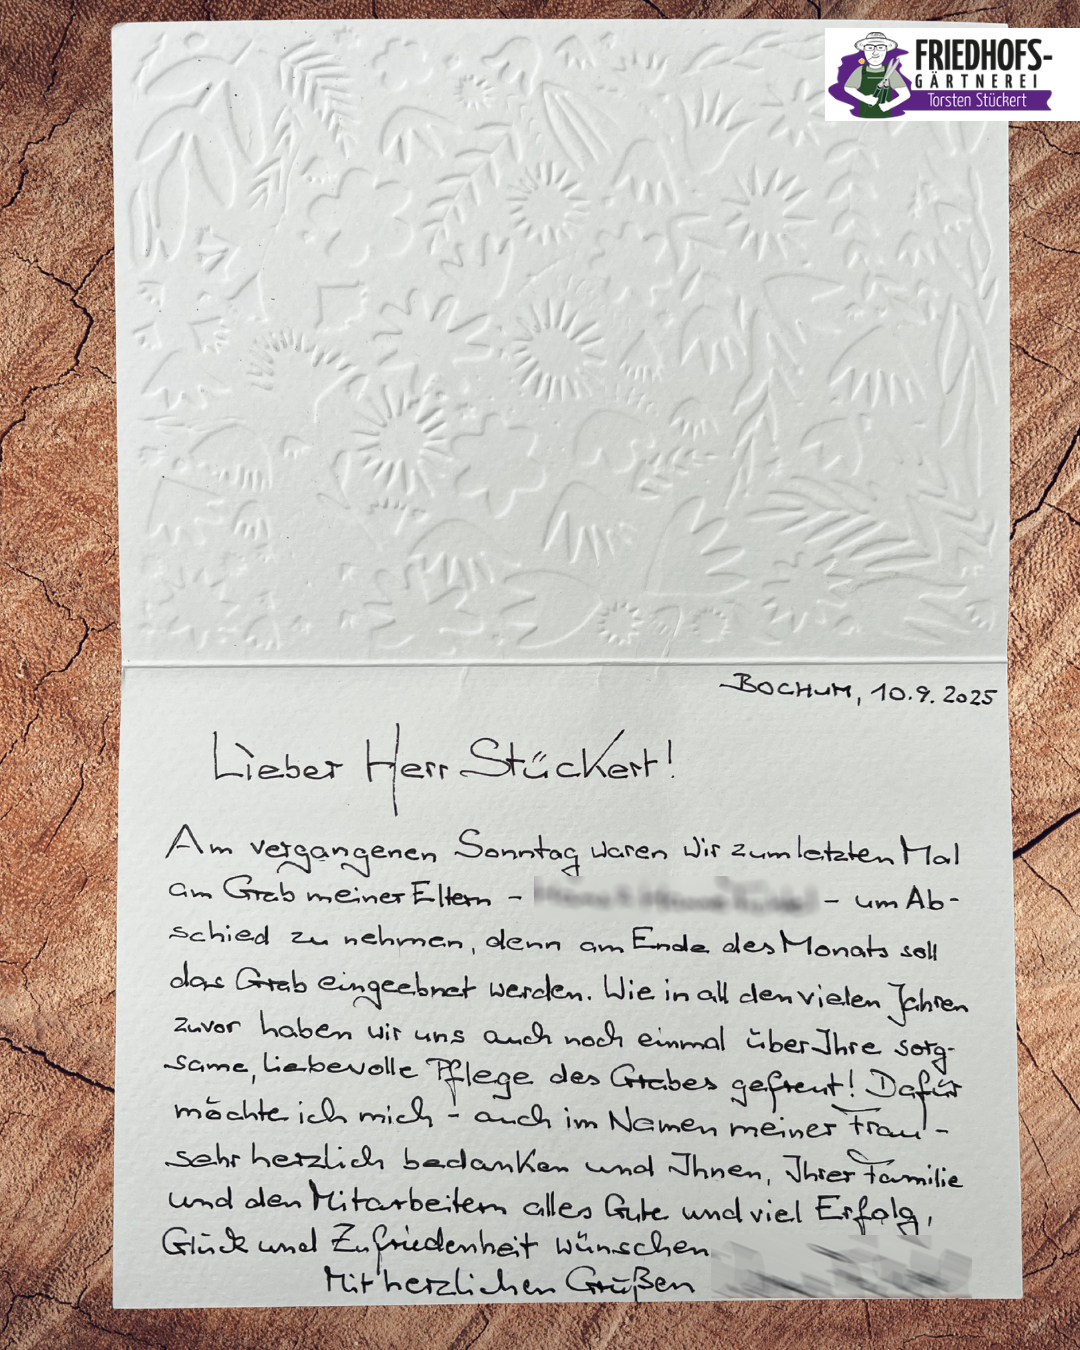 FRIEDHOFS-
GÄRTNEREI
Torsten Stückert
BOCHUM, 10.9.2025
Lieber Herr Stückert!
Am vergangenen Sonntag waren wir zum letzten Mal
am Grab meiner Eltern - - um Ab-
schied zu nehmen, denn am Ende des Monats soll
das Grab eingeebnet werden. Wie in all den vielen Jahren
zuvor haben wir uns auch noch einmal über Ihre sorg-
same, liebevolle Pflege des Grabes gefreut! Dafür
möchte ich mich - auch im Namen meiner Frau -
sehr herzlich bedanken und Ihnen, Ihrer Familie
und den Mitarbeitern alles Gute und viel Erfolg,
Glück und Zufriedenheit wünschen
Mit herzlichen Grüßen